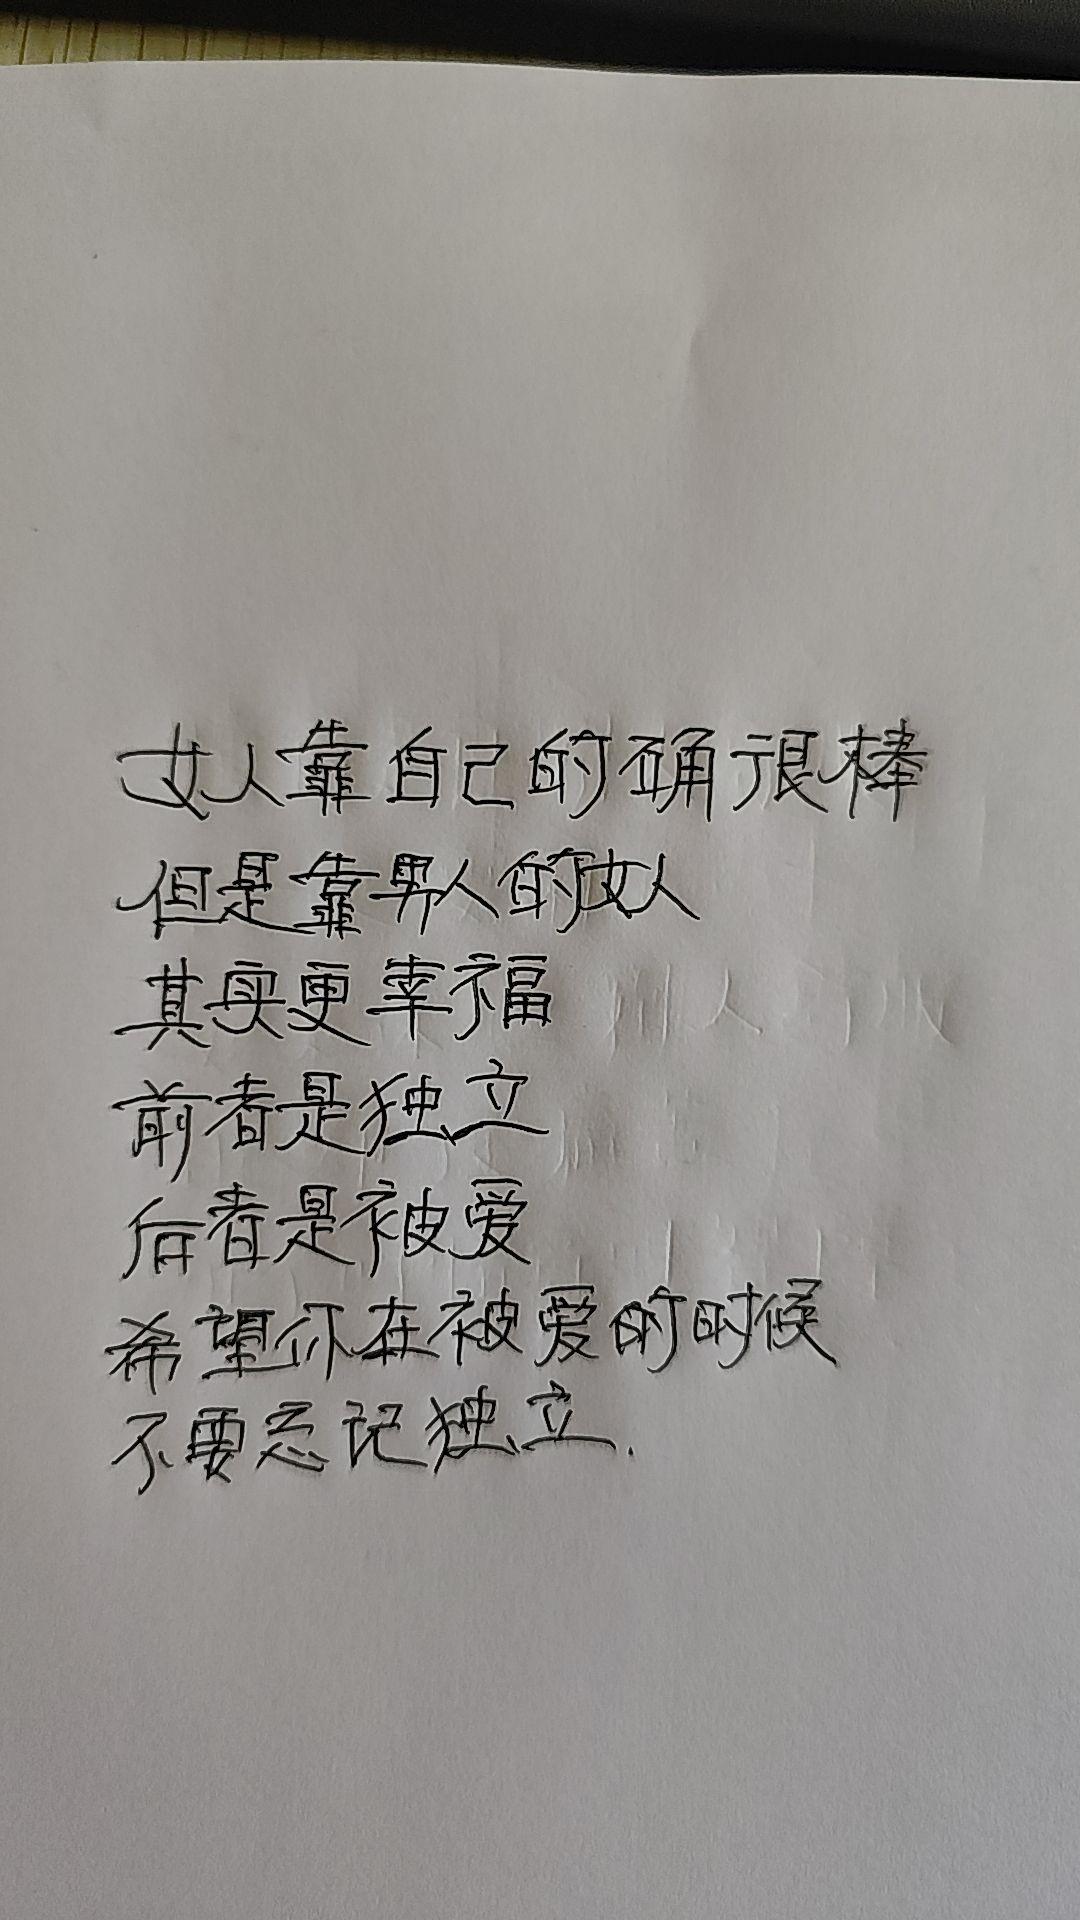 女人靠自己的确很棒
但是靠男人的女人
其实更幸福
前者是独立
后者是被爱
希望你在被爱的时候
不要忘记独立.